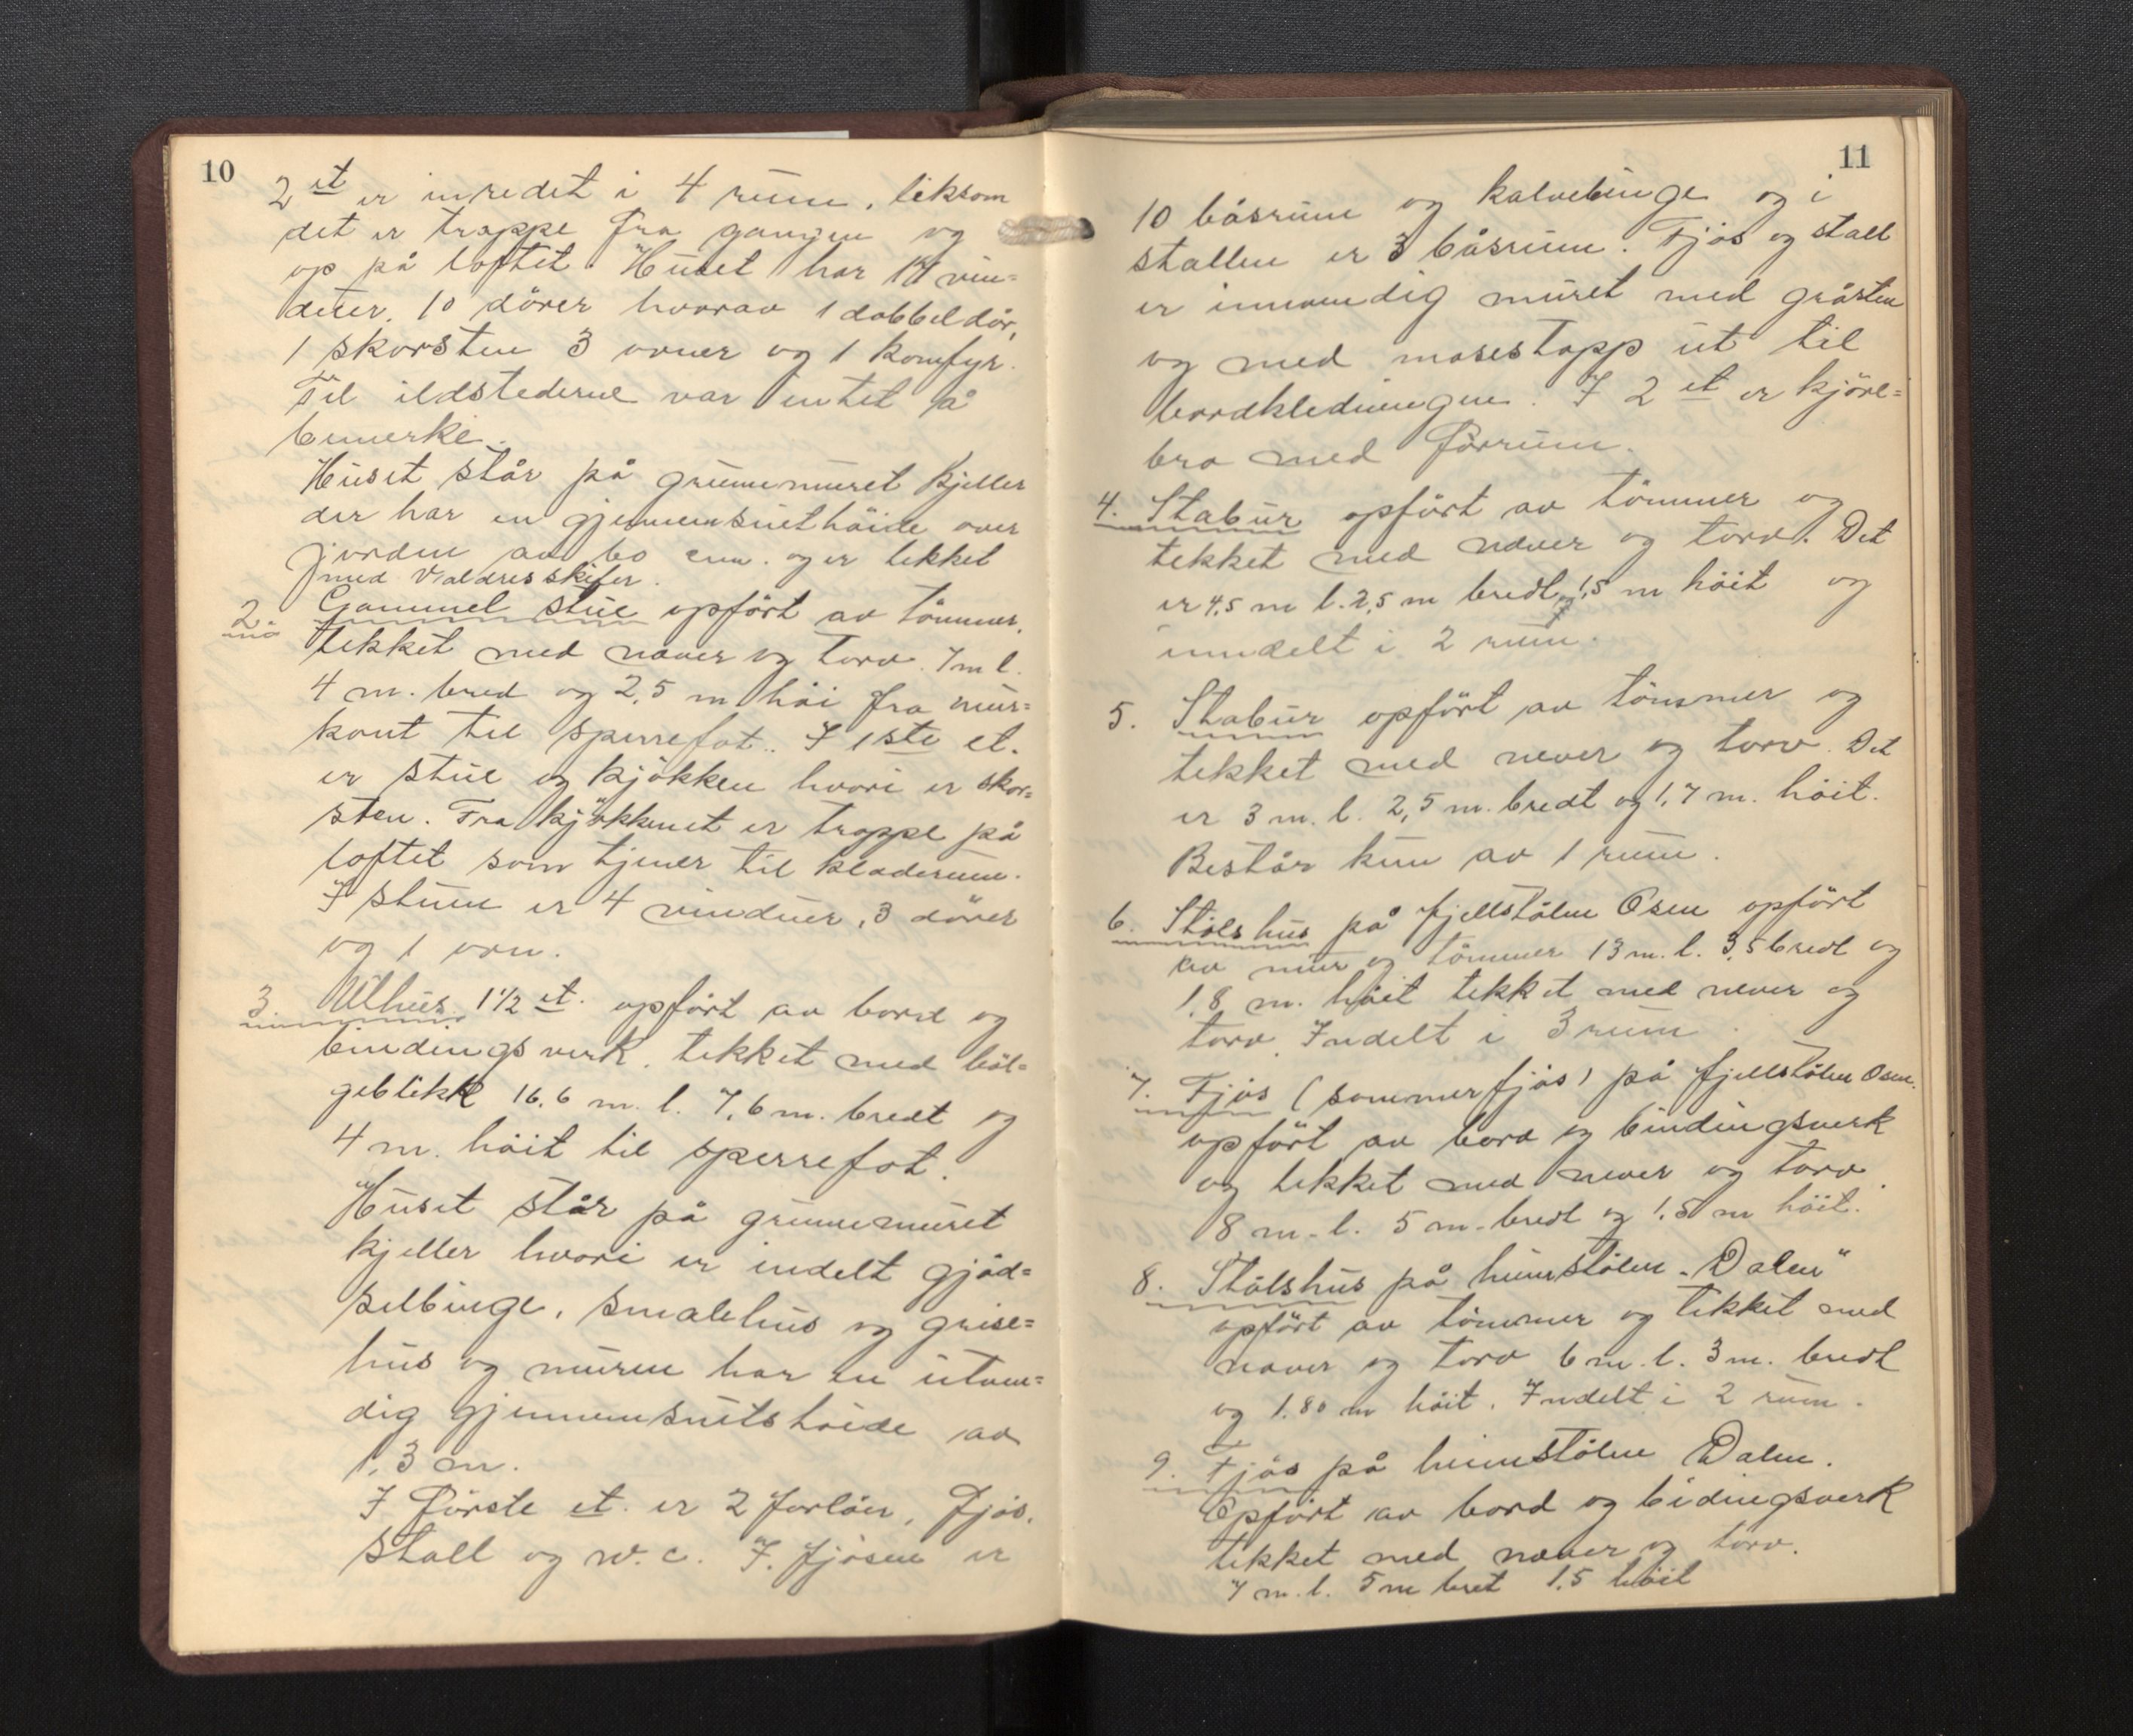 10
2 et er inredet i 4 rum, liksom
det er trappe fra gangen og
op på loftet. Huset har 14 vin-
duer, 10 dörer hvorav 1 dobbeldör,
1 skorsten 3 ovner og 1 komfyr.
Til ildstederne var intet å
bemerke.
Huset står på grunnmuret kjeller
der har en gjennemsnethöide over
jorden av 60 cm. og er tekket
med Valdresskifer.
2. Gammel stue opfört av tömmer,
tekket med never og torv. 7 m l.
4 m. bred og 2,5 m höi fra mur-
kant til sperrefot. I 1ste et.
er stue og kjökken hvori er skor-
sten. Fra kjökkenet er trappe på
loftet som tjener til klæderum.
I stuen er 4 vinduer, 3 dörer
og 1 ovn.
3. Uthus 1 1/2 et. opfört av bord og
bindingsverk, tekket med böl-
geblikk 16,6 m. l. 7,6 m. bredt og
4 m. höit til sperrefot.
Huset står på grunnemuret
kjeller hvori er indelt gjöd-
selbinge, smalehus og grise-
hus og muren har en utven-
dig gjennemsnitshöide av
1,3 m.
I förste et. er 2 forlöer, fjös,
stall og w.c. I fjösen er
11
10 båsrum og kalvebinge og i
stallen er 3 båsrum. Fjös og stall
er innvendig muret med gråsten
og med mosestopp ut til
bordkledningen. I 2 et er kjöre-
bro med förrum.
4. Stabur opfört av tömmer og
tekket med never og torv. Det
er 4,5 m l. 2,5 m bredt, 1,5 m höit og
inndelt i 2 rum.
5. Stabur opfört av tömmer og
tekket med never og torv. Det
er 3 m. l. 2,5 m. bredt og 1,7 m. höit.
Består kun av 1 rum.
6. Stöls hus på fjellstölen Osen opfört
av mur og tömmer 13 m. l. 3,5 bredt og
1,8 m. höit tekket med never og
torv. Indelt i 3 rum.
7. Fjös (sommerfjös) på fjellstölen Osen.
opfört av bord og bindingsverk
og tekket med never og torv.
8 m. l. 5 m. bredt og 1,8 m höit.
8. Stölshus på heimstölen "Dalen"
opfört av tömmer og tekket med
never og torv 6 m. l. 3 m. bredt
og 1.80 m höit. Indelt i 2 rum.
9. Fjös på heimstölen Dalen.
Opfört av bord og bidingsverk
tekket med never og torv.
7 m. l. 5 m bret 1.5 höit